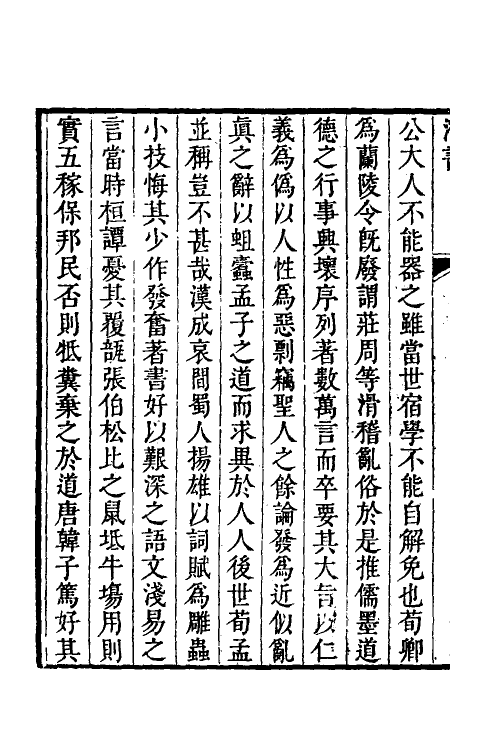 公大人不能器之雖當世宿學不能自解免也荀卿
爲蘭陵令旣廢謂莊周等滑稽亂俗於是推儒墨道
德之行事興壞序列著數萬言而卒要其大旨以仁
義爲僞以人性爲惡剽竊聖人之餘論發爲近似亂
眞之辭以蛆蠧孟子之道而求異於人人後世荀孟
並稱豈不甚哉漢成哀間蜀人揚雄以詞賦爲雕蟲
小技悔其少作發奮著書好以艱深之語文淺易之
言當時桓譚憂其覆瓿張伯松比之鼠坻牛場用則
實五稼保邦民否則牴糞棄之於道唐韓子篤好其